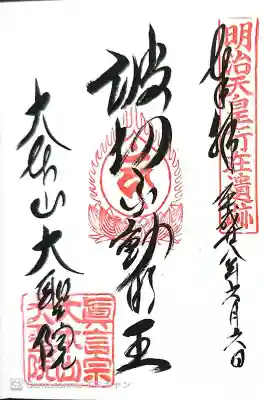 明治天皇行在遺跡
奉拝 平成廿八年六月六日
波切不動明王
大本山大聖院
眞言宗
大本山
大聖院
CS